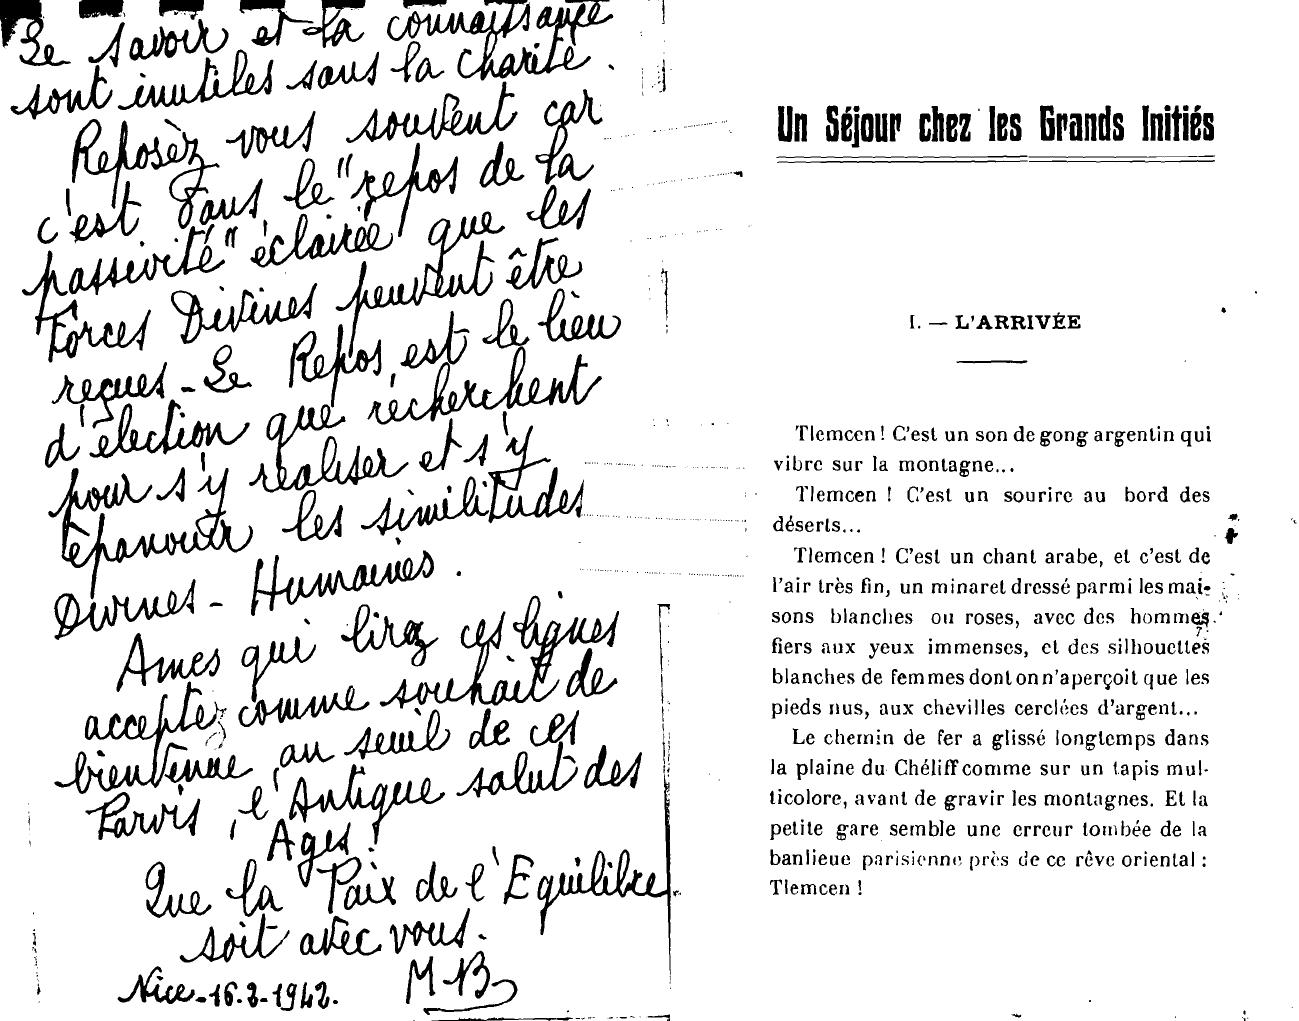 Le savoir et la connaissance
sont inutiles sans la charité.
Reposèz vous souvent car
c'est dans le "repos de la
passivité" éclairée que les
Forces Divines peuvent être
reçues - Le Repos est le lieu
d'élection que recherchent
pour s'y réaliser et s'y
épanouir les similitudes
Divines - Humaines.
Ames qui lirez ces lignes
acceptez comme souhait de
bienvenue, au seuil de ces
Parvis, l'Antique salut des
Ages !
Que la Paix de l'Equilibre
soit avec vous.
Nice - 16.2-1942. M B
Un Séjour chez les Grands Initiés
I. — L'ARRIVÉE
Tlemcen ! C'est un son de gong argentin qui
vibre sur la montagne...
Tlemcen ! C'est un sourire au bord des
déserts...
Tlemcen ! C'est un chant arabe, et c'est de
l'air très fin, un minaret dressé parmi les mai-
sons blanches ou roses, avec des hommes
fiers aux yeux immenses, et des silhouettes
blanches de femmes dont on n'aperçoit que les
pieds nus, aux chevilles cerclées d'argent...
Le chemin de fer a glissé longtemps dans
la plaine du Chéliff comme sur un tapis mul-
ticolore, avant de gravir les montagnes. Et la
petite gare semble une erreur tombée de la
banlieue parisienne près de ce rêve oriental :
Tlemcen !